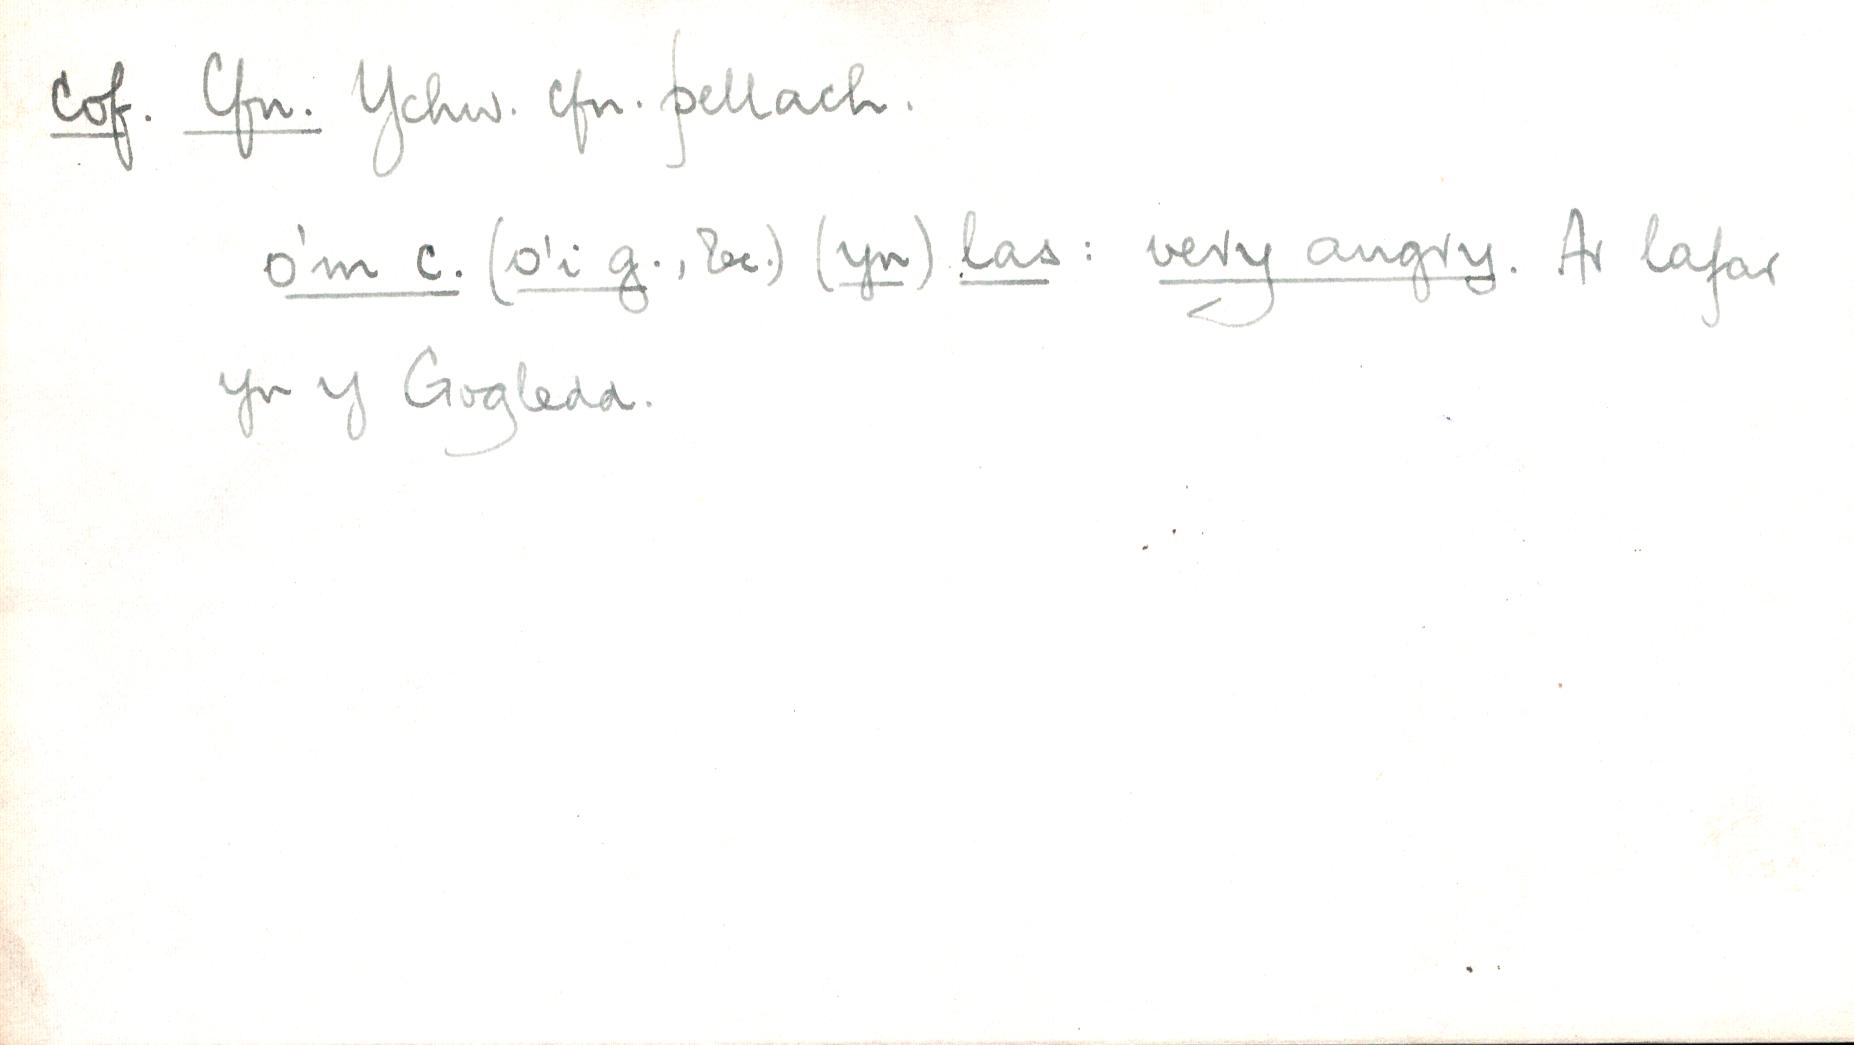 cof. Cfn. Ychw. cfn. pellach.
o'm c. (o'i g., &c.) (yn) las: very angry. Ar lafar
yn y Gogledd.